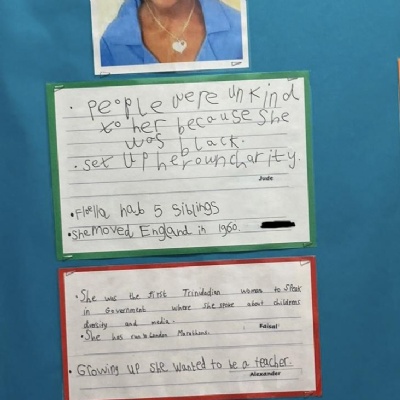 • People were unkind
to her because She
was black.
• set up her own charity.
Jude
• Floella has 5 siblings
• She moved England in 1960.
• She was the first Trinidadian woman to Speak
in Government where She spoke about childrens
diversity and media.
• She has run London Marathons.
Faisal
• Growing up she wanted to be a teacher.
Alexander